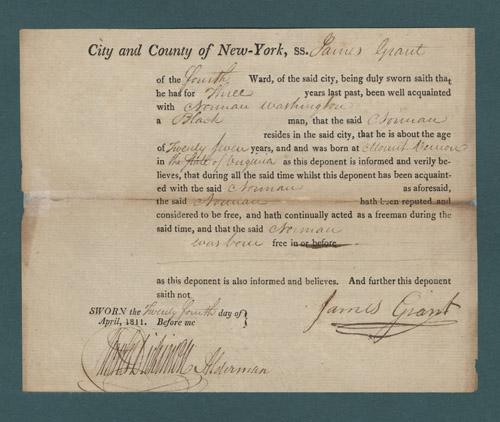 City and County of New-York, ss. James Grant
of the Fourth Ward, of the said city, being duly sworn saith that
he has for Three years last past, been well acquainted
with Norman Washington
a Black man, that the said Norman
resides in the said city, that he is about the age
of Twenty seven years, and and was born at Mount Vernon
in the State of Virginia as this deponent is informed and verily be-
lieves, that during all the said time whilst this deponent has been acquaint-
ed with the said Norman as aforesaid,
the said Norman hath been reputed and
considered to be free, and hath continually acted as a freeman during the
said time, and that the said Norman
was born free in or before
as this deponent is also informed and believes. And further this deponent
saith not
SWORN the Twenty fourth day of
April, 1811. Before me
James Grant
Dickinson Alderman